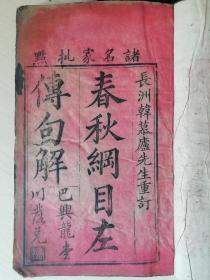 諸名家批點
長洲韓慕廬先生重訂
春秋綱目左
傳句解
巴興龍李